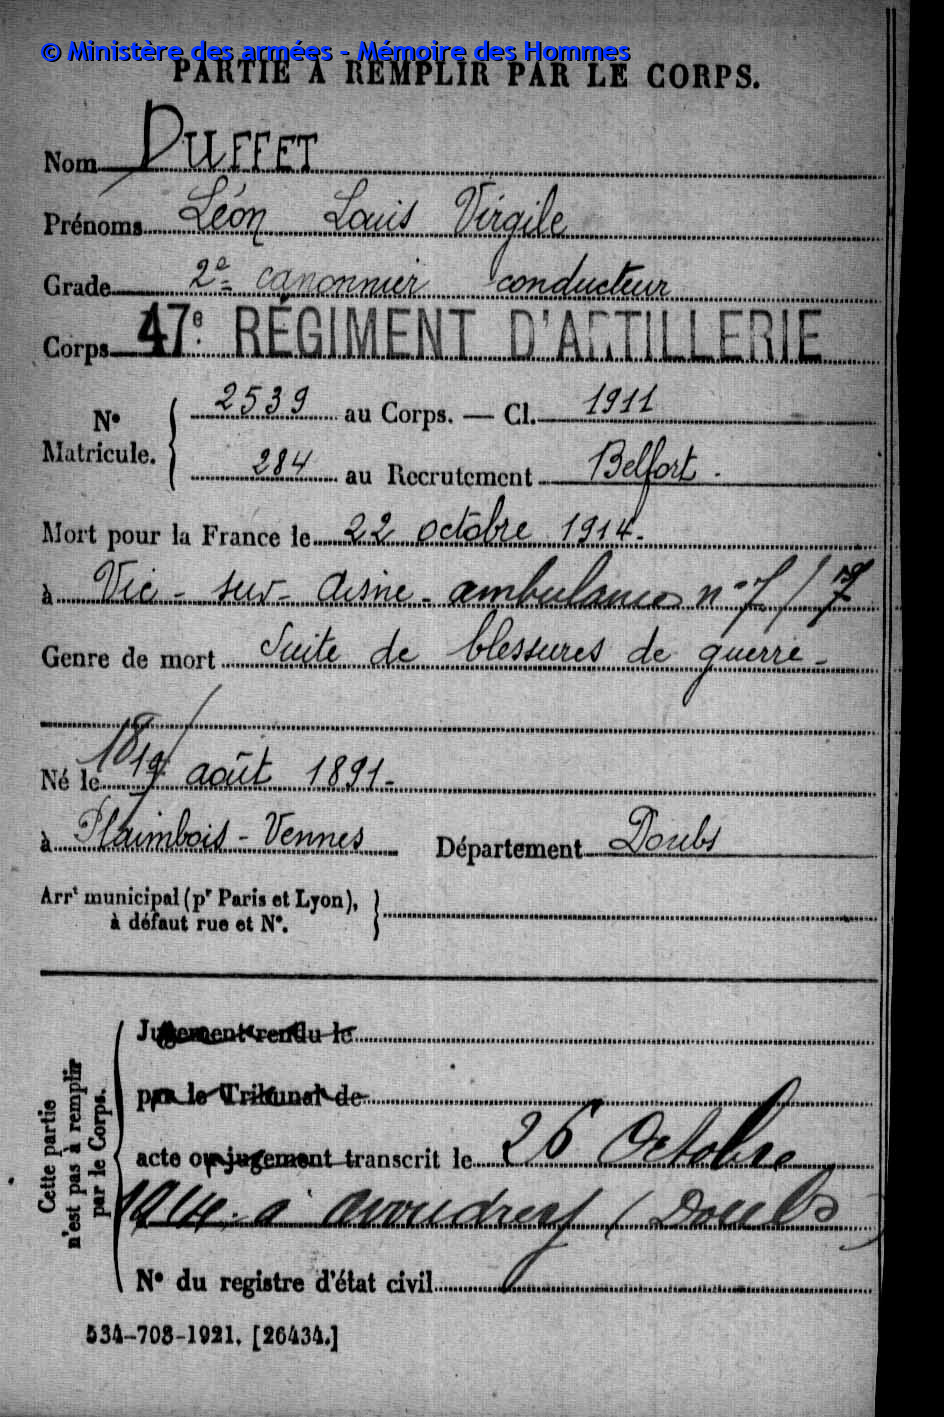 © Ministère des armées - Mémoire des Hommes
PARTIE A REMPLIR PAR LE CORPS.
Nom DUFFET
Prénoms Léon Louis Virgile
Grade 2e canonnier conducteur
Corps 47e RÉGIMENT D'ARTILLERIE
No Matricule. { 2539 au Corps. — Cl. 1911
284 au Recrutement Belfort.
Mort pour la France le 22 octobre 1914.
à Vic-sur-Aisne - ambulance n°7/7
Genre de mort Suite de blessures de guerre -
Né le 18 19 août 1891.
à Plaimbois-Vennes Département Doubs
Arrt municipal (pr Paris et Lyon),
à défaut rue et N°.
Cette partie n'est pas à remplir par le Corps.
Jugement rendu le
par le Tribunal de
acte ou jugement transcrit le 26 Octobre
1914 à Avoudrey (Doubs)
N° du registre d'état civil
534-708-1921. [26434.]